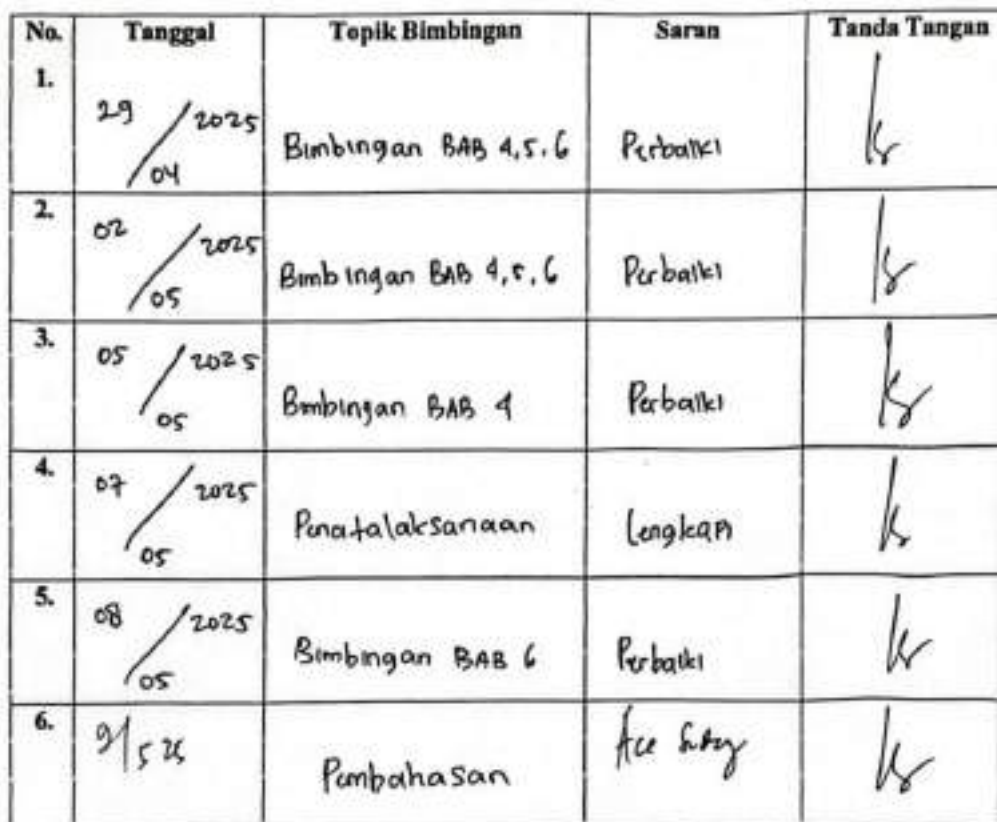 No. Tanggal Topik Bimbingan Saran Tanda Tangan
1. 29/04 2025 Bimbingan BAB 4,5,6 Perbaiki
2. 02/05 2025 Bimbingan BAB 4,5,6 Perbaiki
3. 05/05 2025 Bimbingan BAB 4 Perbaiki
4. 07/05 2025 Penatalaksanaan Lengkapi
5. 08/05 2025 Bimbingan BAB 6 Perbaiki
6. 9/5 25 Pembahasan Acc